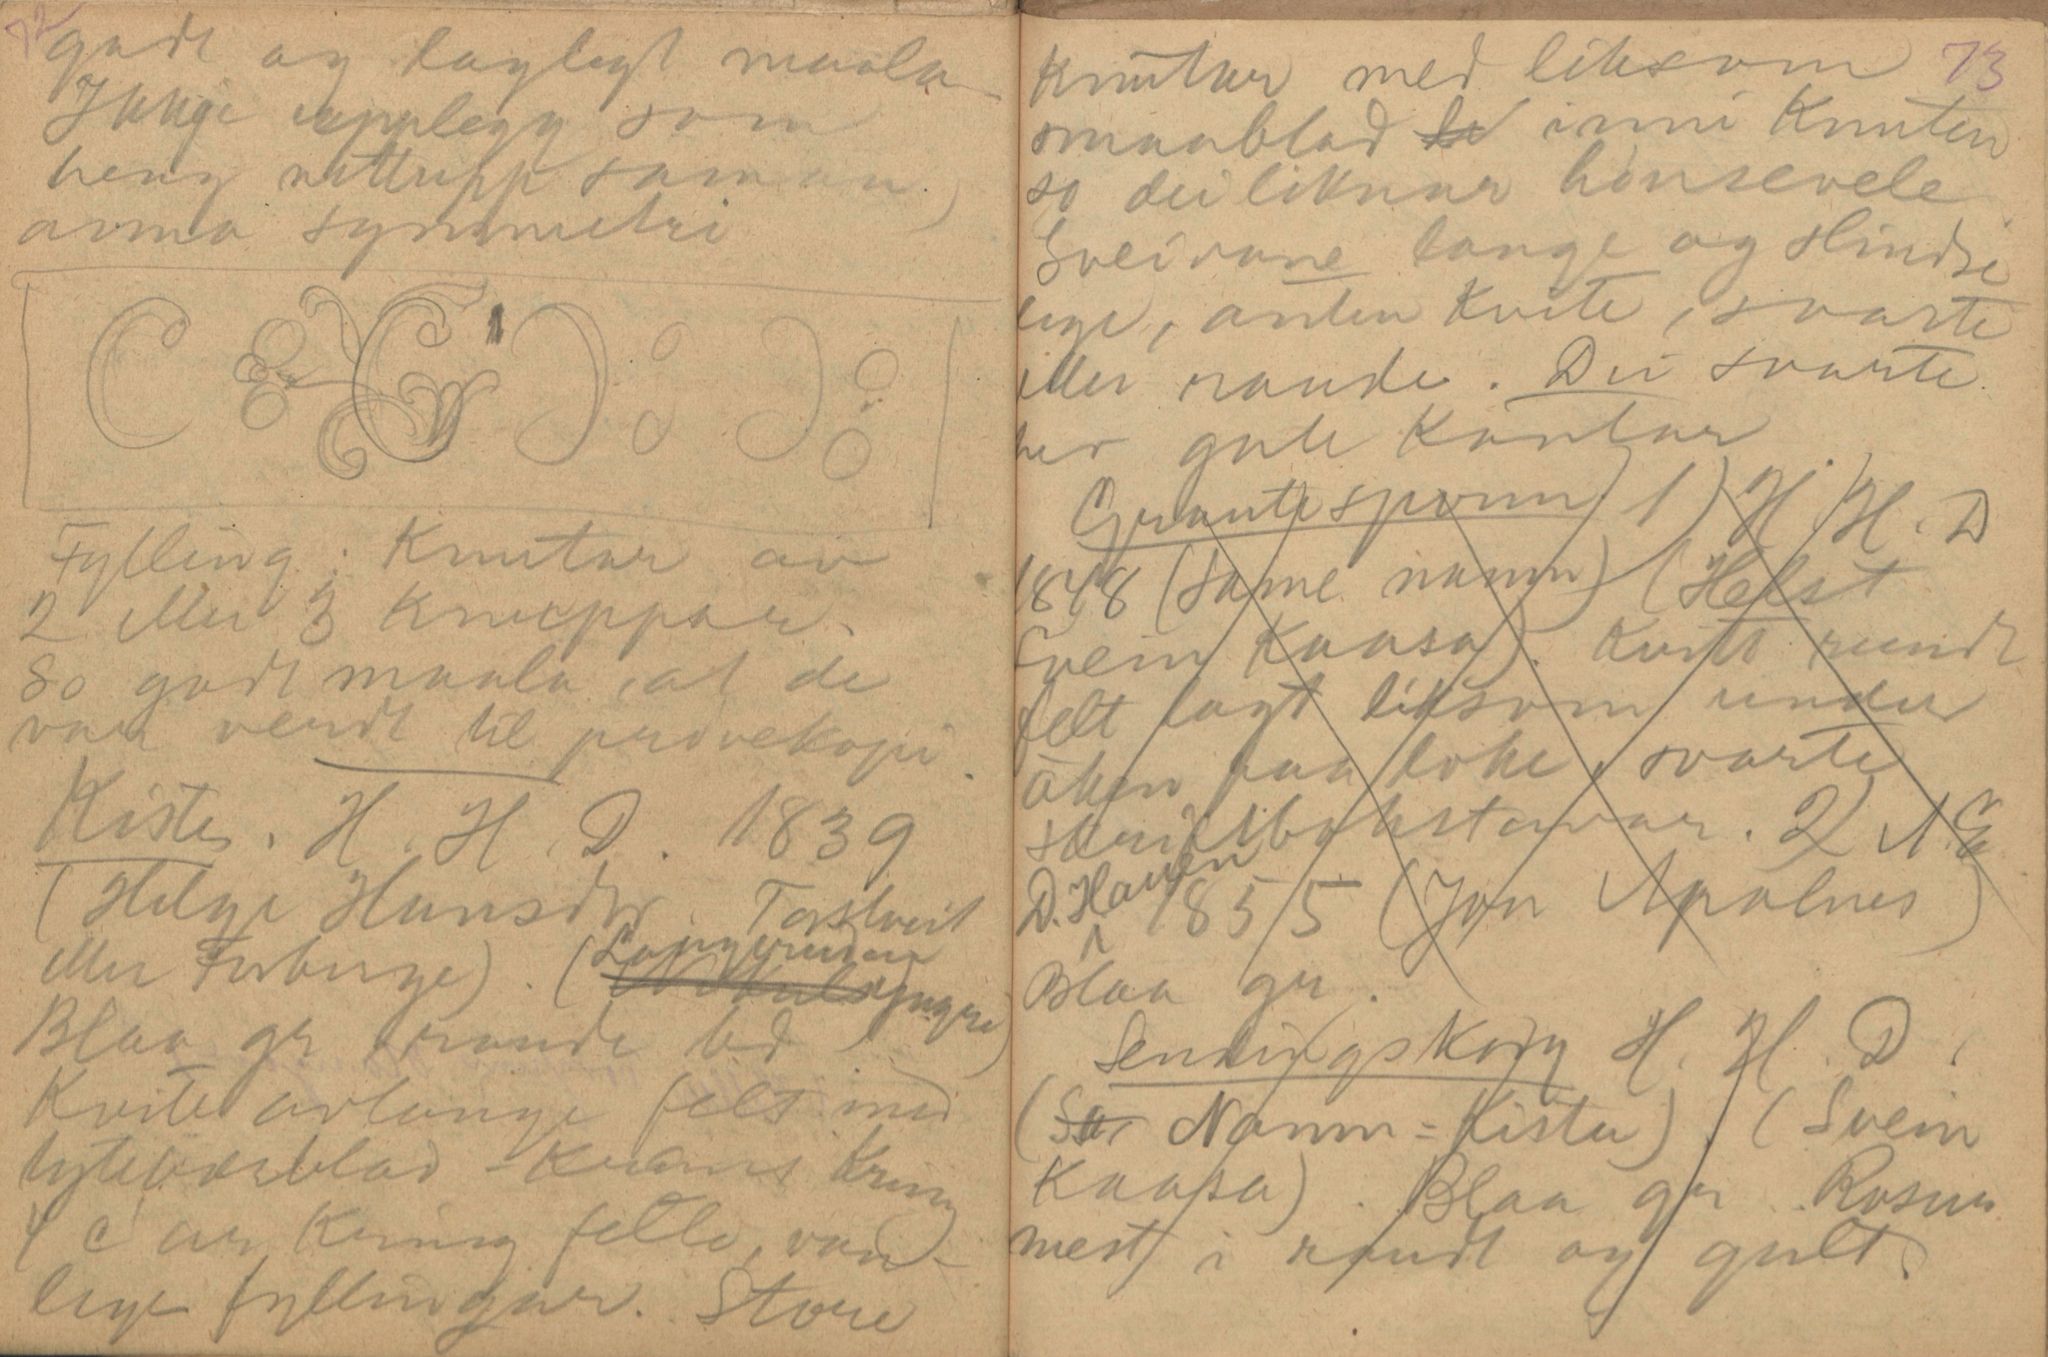 72
godt og laglegt maala
Ikkje upplegg som
heng rettupp saman
anna symmetri
Fylling: Knutar av
2 eller 3 Knuppar.
So godt maala, at de
var verdt til prøvekopi.
Kiste. H. H. D. 1839
(Helge Hansdtr. Tortveit
eller Forberge). (
Blaa gr raude
Kvite avlange felt med
tytebærblad - Krans Kring
4 C ar Kring felle, van-
lege fyllingar. Store
73
Knutar med liksom
smaablad inni Knuten
so dei liknar
Sveivane lange og Hindse
lege, anten Kvite, svarte
eller raude. Dei svarte
her gule Kantar.
Grautesponn 1) H. H. D
1848 (Same namn) (Helst
Svein Kaasa). Kvitt rundt
felt lagt liksom under
åken paa loke, svarte
skriftbokstavar. 2)
D. Hauen 1855 (Jon Apalnes)
Blaa gr.
Sendingskorg H. H. D.
(Namn = Kista). (Svein
Kaasa). Blaa gr. Rosur
mest i raudt og gult.